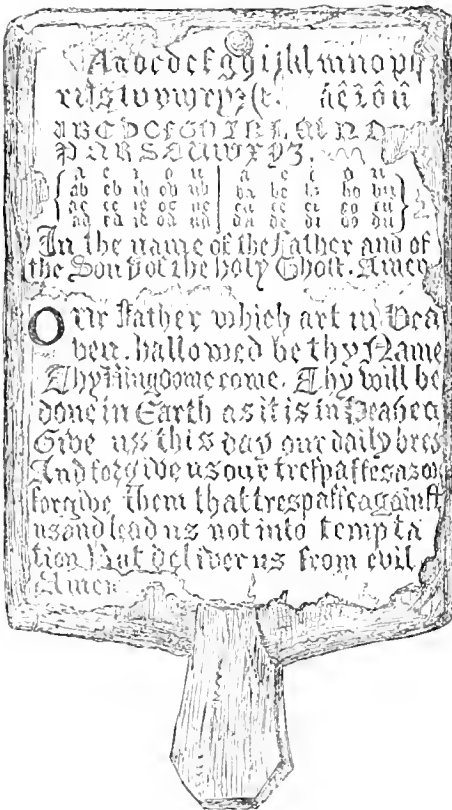 Aabcdefghijklmnopq
rsstuvwxyz&. áêîôû
ABCDEFGHIKLMNO
PQRSTUWXYZ.
a e i o u | a e i o u
ab eb ib ob ub | ba be bi bo bu
ac ec ic oc uc | ca ce ci co cu
ad ed id od ud | da de di do du
In the name of the Father and of
the Son & of the holy Ghost. Amen
Our Father which art in Hea
ven. hallowed be thy Name
Thy Kingdome come. Thy will be
done in Earth as it is in Heaven
Give us this day our daily bre
And forgive us our trespasses as
forgive them that trespasse against
us and lead us not into tempta
tion But deliver us from evil
Amen